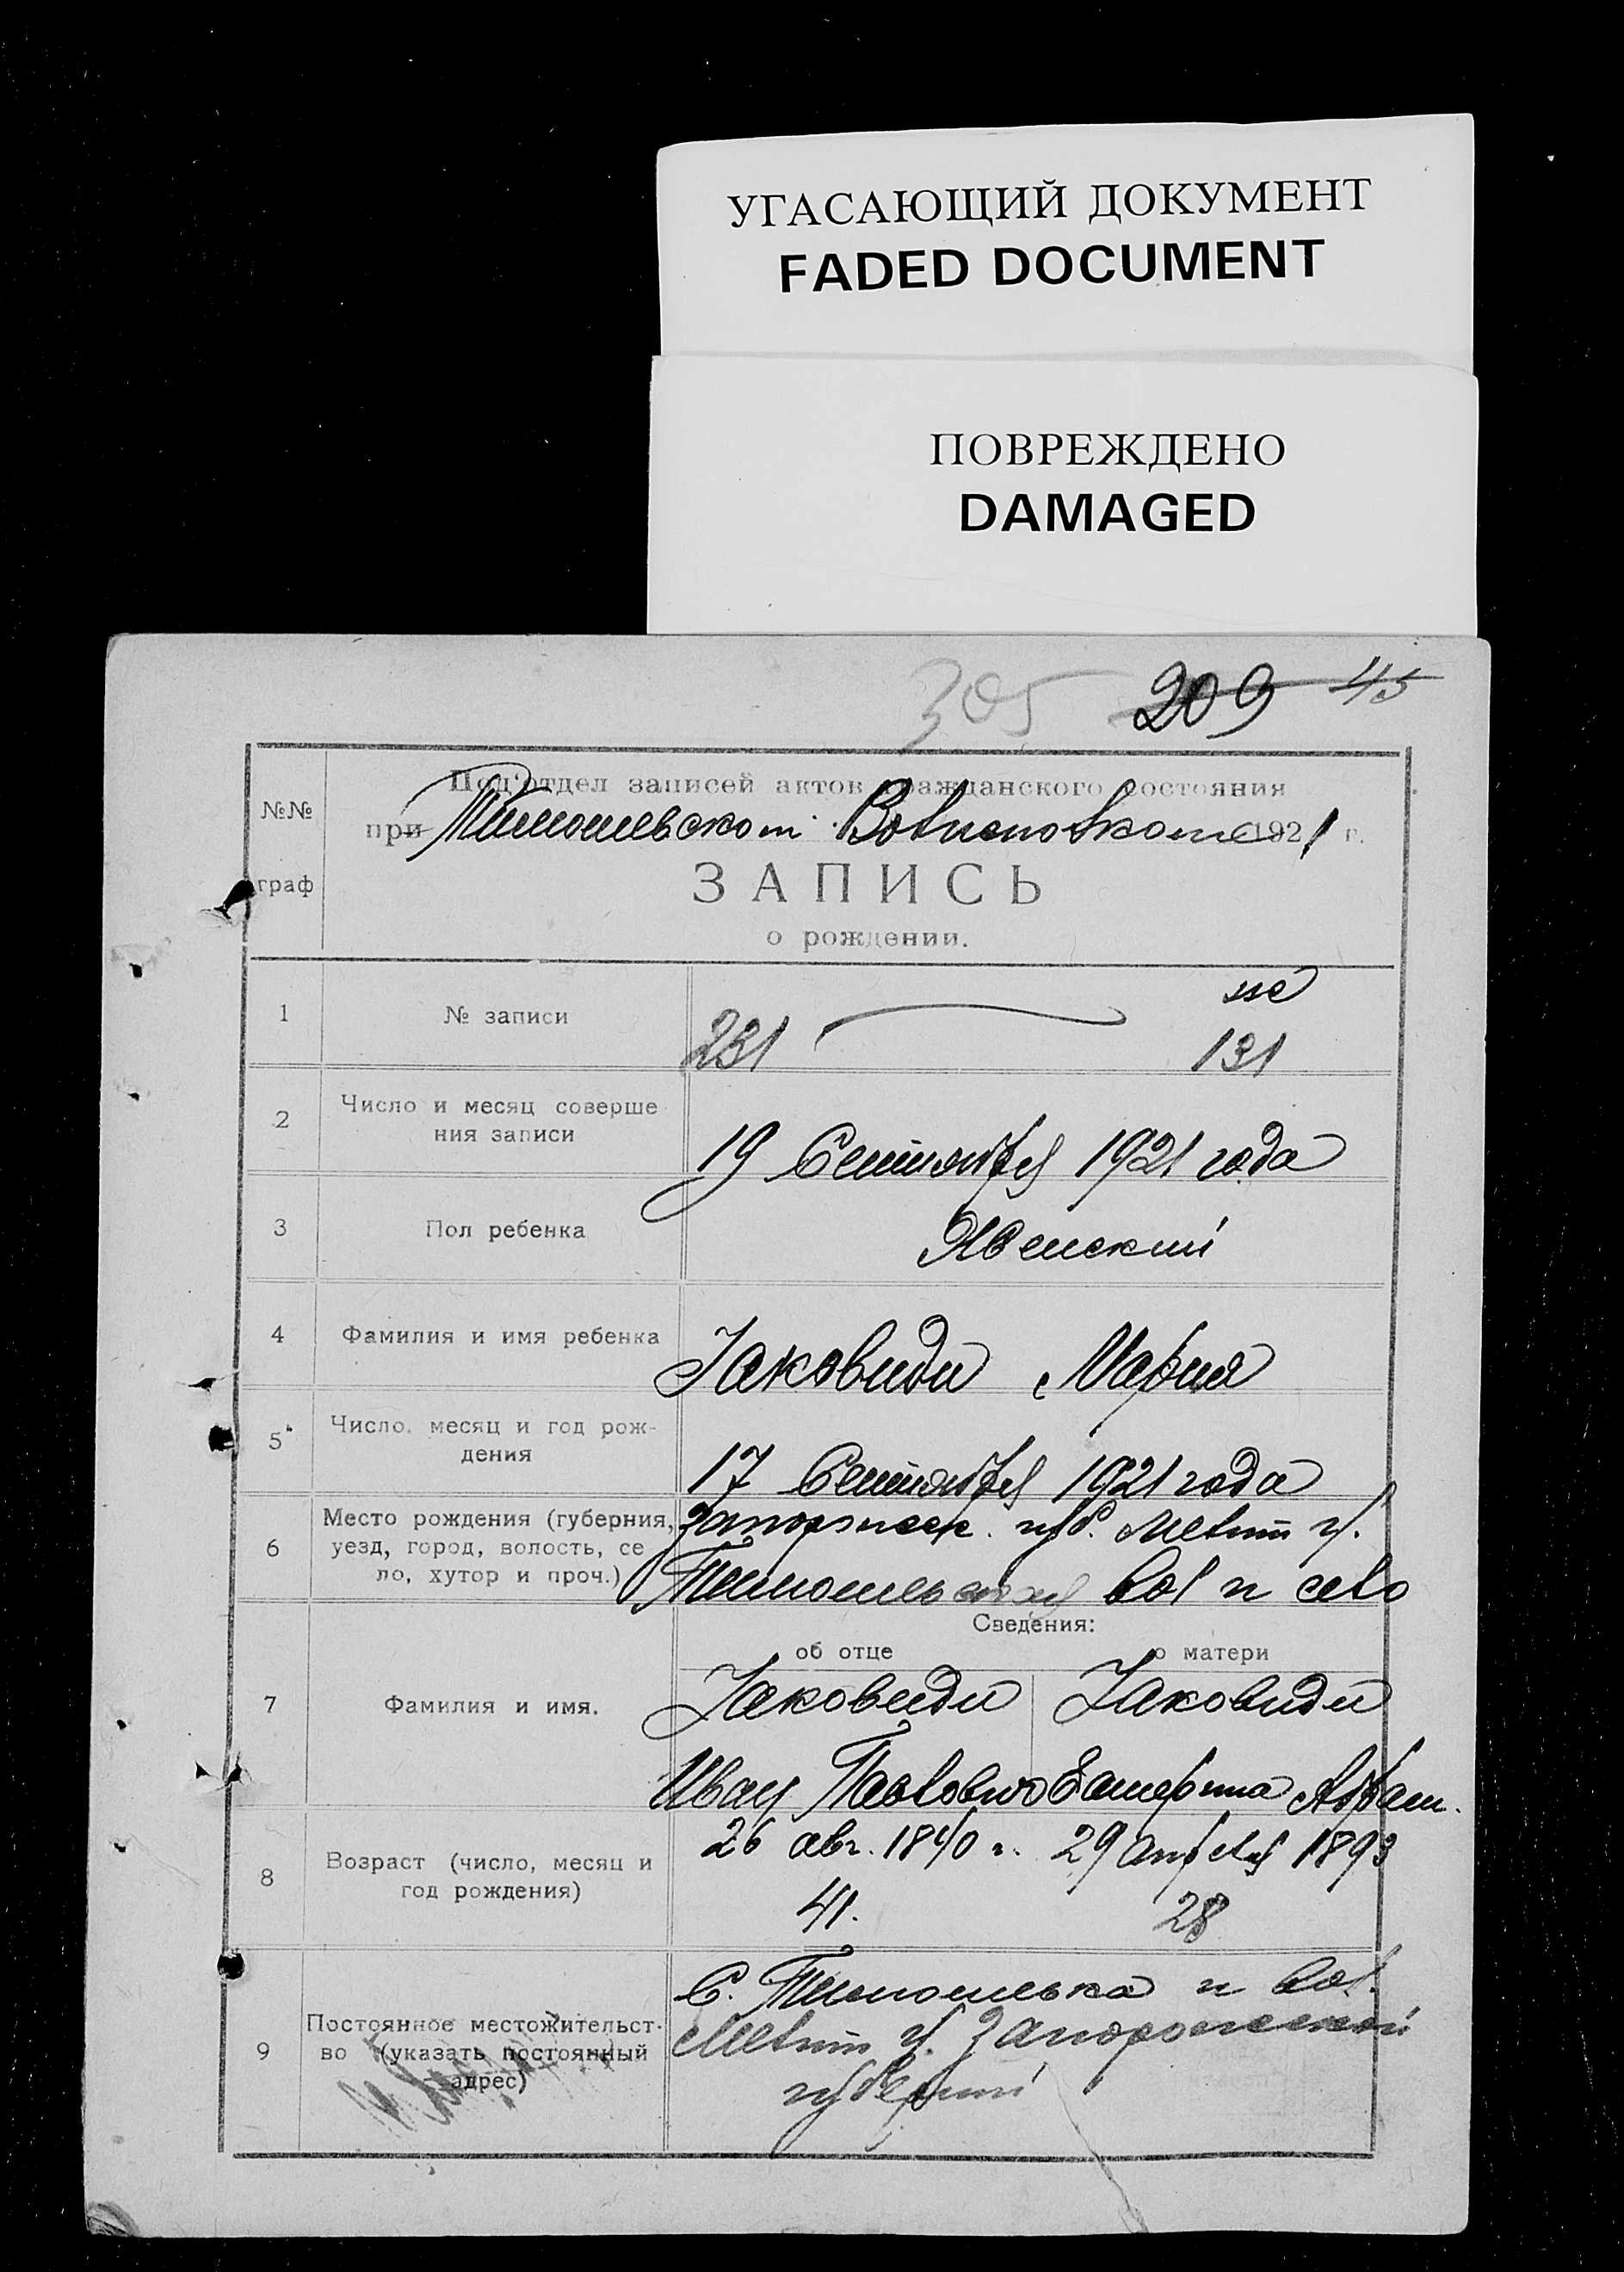 УГАСАЮЩИЙ ДОКУМЕНТ
FADED DOCUMENT
ПОВРЕЖДЕНО
DAMAGED
305 209 45
№№ граф
Под'отдел записей актов гражданского состояния
при Тимошевском Волисполкоме 1921 г.
ЗАПИСЬ
о рождении.
1 № записи 231 131
2 Число и месяц соверше
ния записи
19 Сентября 1921 года
3 Пол ребенка Женский
4 Фамилия и имя ребенка Јаковиди Мария
5 Число, месяц и год рож-
дения
17 Сентября 1921 года
6 Место рождения (губерния,
уезд, город, волость, се
ло, хутор и проч.)
Запорожск. губ. Мелит у.
Тимошевской вол и село
Сведения:
об отце о матери
7 Фамилия и имя.
Јаковиди Јаковиди
Иван Павлович Екатерина Абрам.
8 Возраст (число, месяц и
год рождения)
26 авг. 1840 г. 29 апреля 1893
41. 28
9 Постоянное местожительст-
во (указать постоянный
адрес)
С. Тимошевка и вол.
Мелит у. Запорожской
губернии